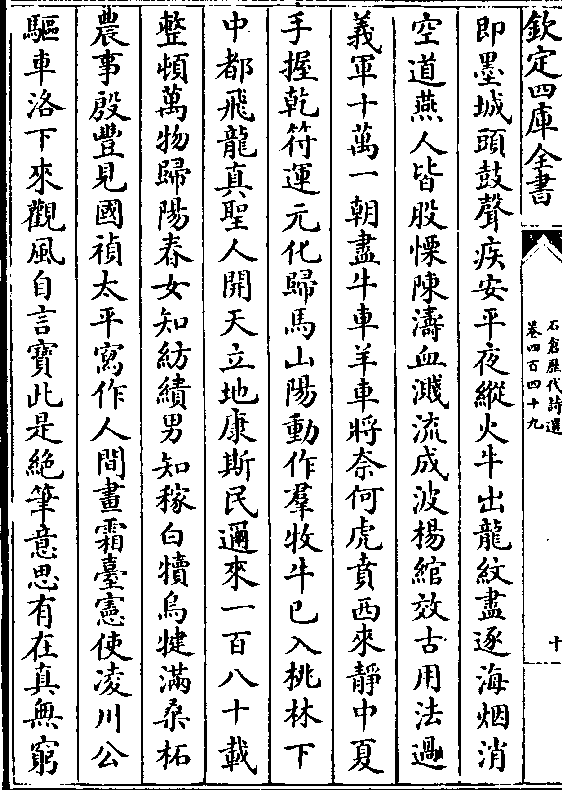 欽定四庫全書
石倉歷代詩選
卷四百四十九
十
即墨城頭鼓聲疾安平夜縱火牛出龍紋盡逐海烟消
空道燕人皆股慄陳濤血濺流成波楊綰效古用法過
義軍十萬一朝盡牛車羊車將奈何虎賁西來靜中夏
手握乾符運元化歸馬山陽動作羣牧牛已入桃林下
中都飛龍真聖人開天立地康斯民邇來一百八十載
整頓萬物歸陽春女知紡績男知稼白犢烏犍滿桑柘
農事殷豐見國禎太平寫作人間畫霜臺憲使凌川公
驅車洛下來觀風自言寶此是絶筆意思有在真無窮